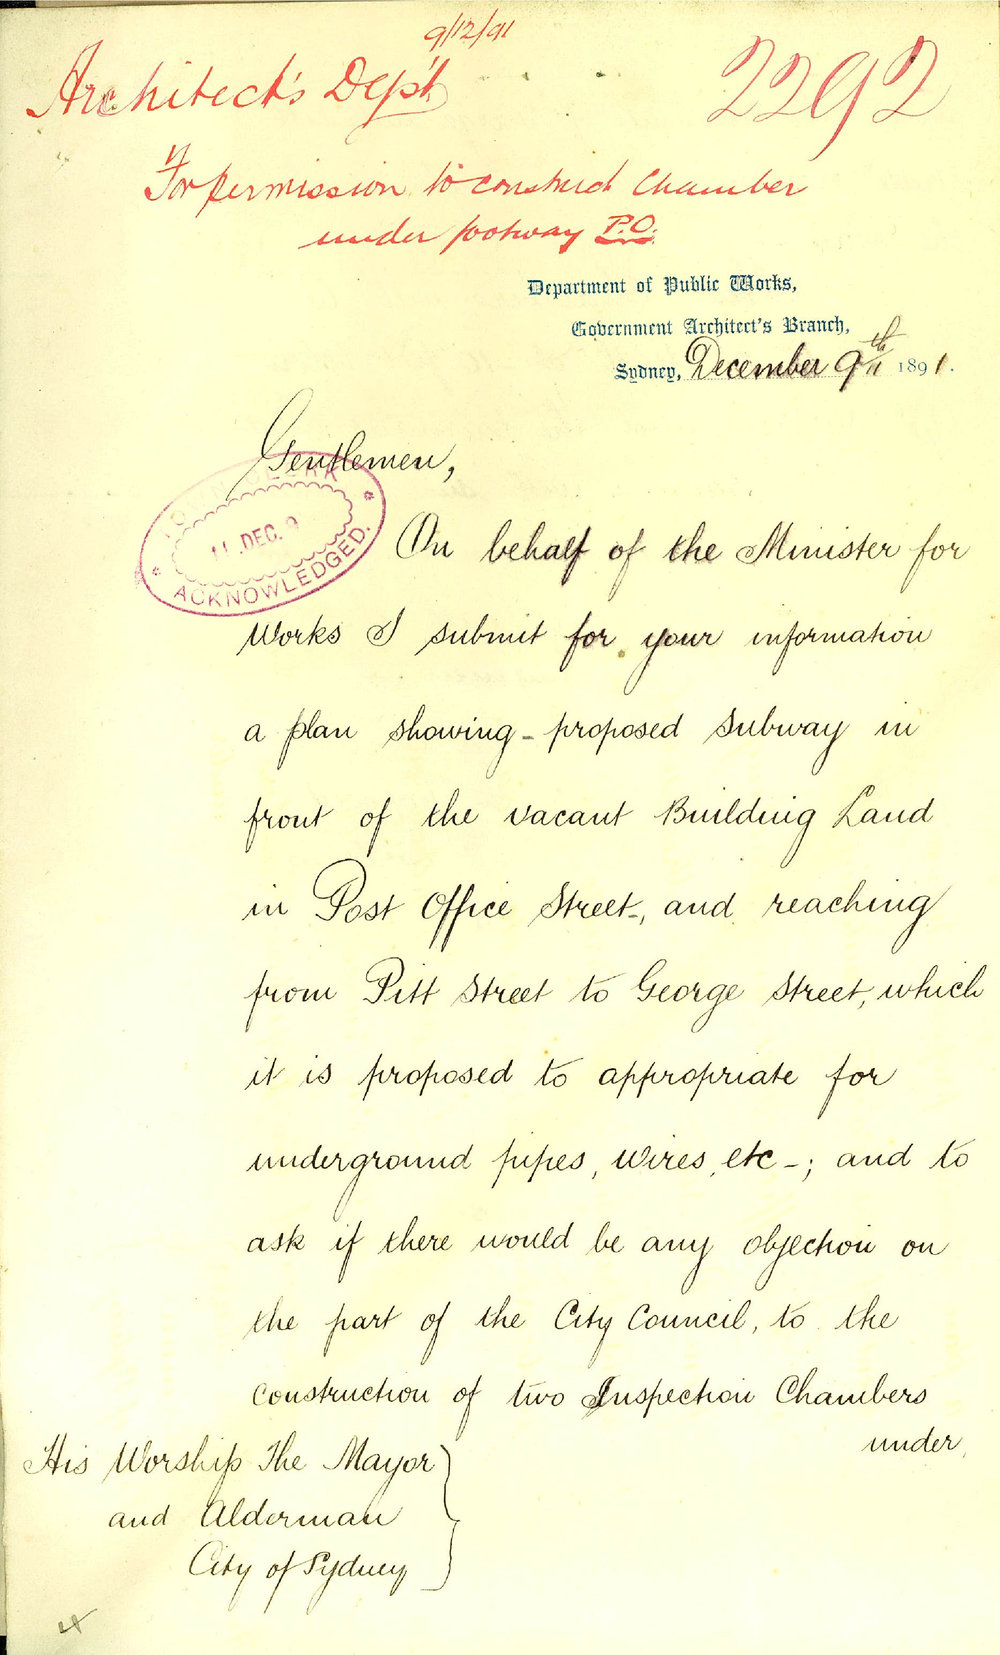 9/12/91
Architect's Dep't
2292
For permission to construct Chamber
under footway P.O.
Department of Public Works,
Government Architect's Branch,
Sydney, December 9th 1891.
Gentlemen,
11 DEC. 9
ACKNOWLEDGED.
On behalf of the Minister for
Works I submit for your information
a plan showing - proposed Subway in
front of the vacant Building Land
in Post Office Street, and reaching
from Pitt Street to George Street, which
it is proposed to appropriate for
underground pipes, wires, etc -; and to
ask if there would be any objection on
the part of the City Council, to the
construction of two Inspection Chambers
under
His Worship The Mayor
and Alderman
City of Sydney